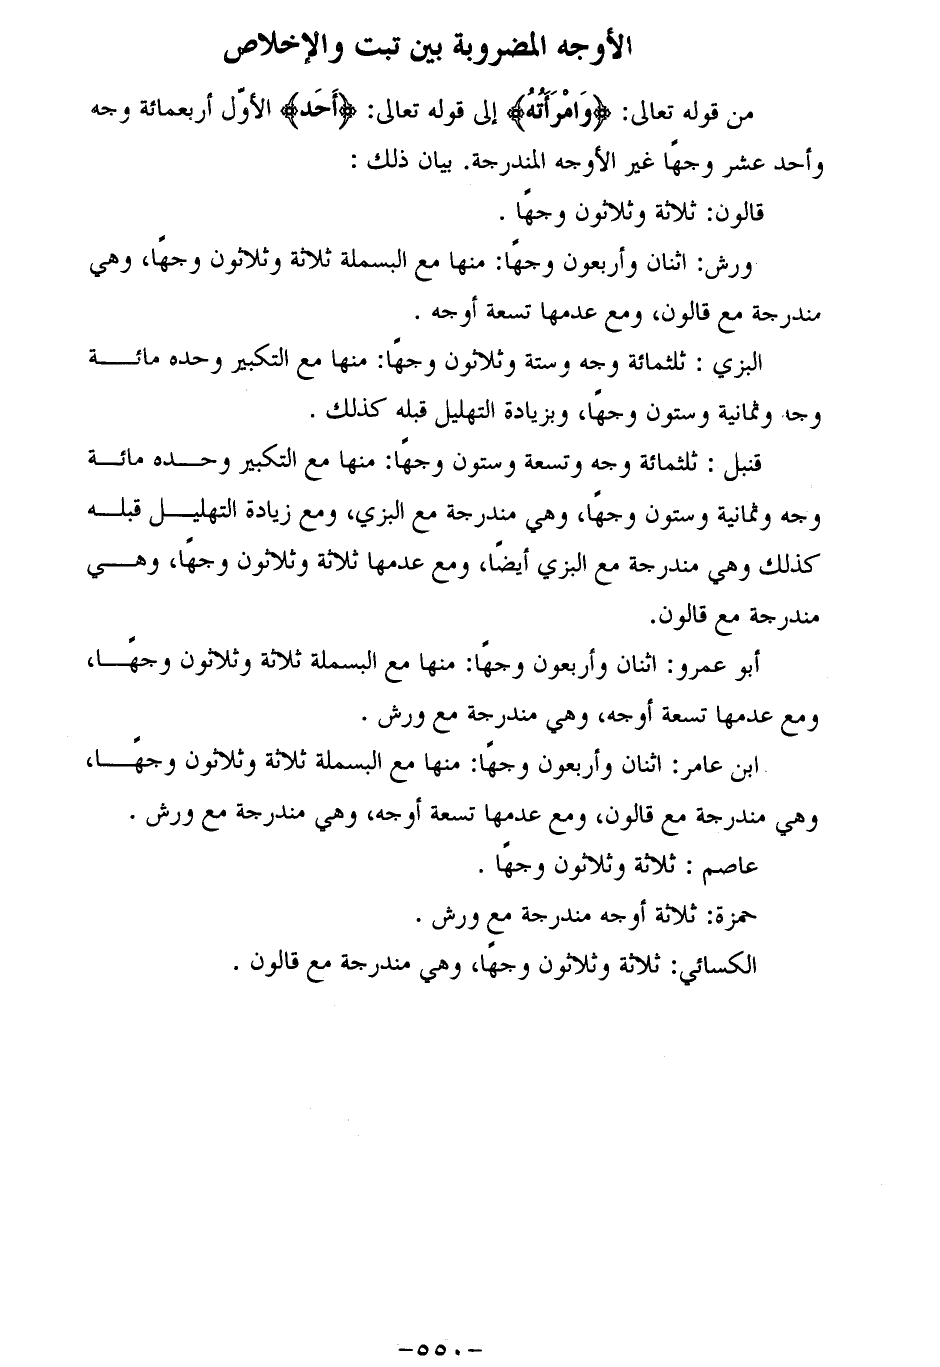 الأوجه المضروبة بين تبت والإخلاص
من قوله تعالى: ﴿وَامْرَأَتُهُ﴾ إلى قوله تعالى: ﴿أَحَد﴾ الأوّل أربعمائة وجه
وأحد عشر وجهًا غير الأوجه المندرجة. بيان ذلك :
قالون: ثلاثة وثلاثون وجهًا .
ورش: اثنان وأربعون وجهًا: منها مع البسملة ثلاثة وثلاثون وجهًا، وهي
مندرجة مع قالون، ومع عدمها تسعة أوجه .
البزي : ثلثمائة وجه وستة وثلاثون وجهًا: منها مع التكبير وحده مائـــة
وجه وثمانية وستون وجهًا، وبزيادة التهليل قبله كذلك .
قنبل : ثلثمائة وجه وتسعة وستون وجهًا: منها مع التكبير وحـــده مائـــة
وجه وثمانية وستون وجهًا، وهي مندرجة مع البزي، ومع زيادة التهليـــل قبلـــه
كذلك وهي مندرجة مع البزي أيضًا، ومع عدمها ثلاثة وثلاثون وجهًا، وهـــي
مندرجة مع قالون.
أبو عمرو: اثنان وأربعون وجهًا: منها مع البسملة ثلاثة وثلاثون وجهًـــا،
ومع عدمها تسعة أوجه، وهي مندرجة مع ورش .
ابن عامر: اثنان وأربعون وجهًا: منها مع البسملة ثلاثة وثلاثون وجهًـــا،
وهي مندرجة مع قالون، ومع عدمها تسعة أوجه، وهي مندرجة مع ورش .
عاصم : ثلاثة وثلاثون وجهًا .
حمزة: ثلاثة أوجه مندرجة مع ورش .
الكسائي: ثلاثة وثلاثون وجهًا، وهي مندرجة مع قالون .
-٥٥٠-